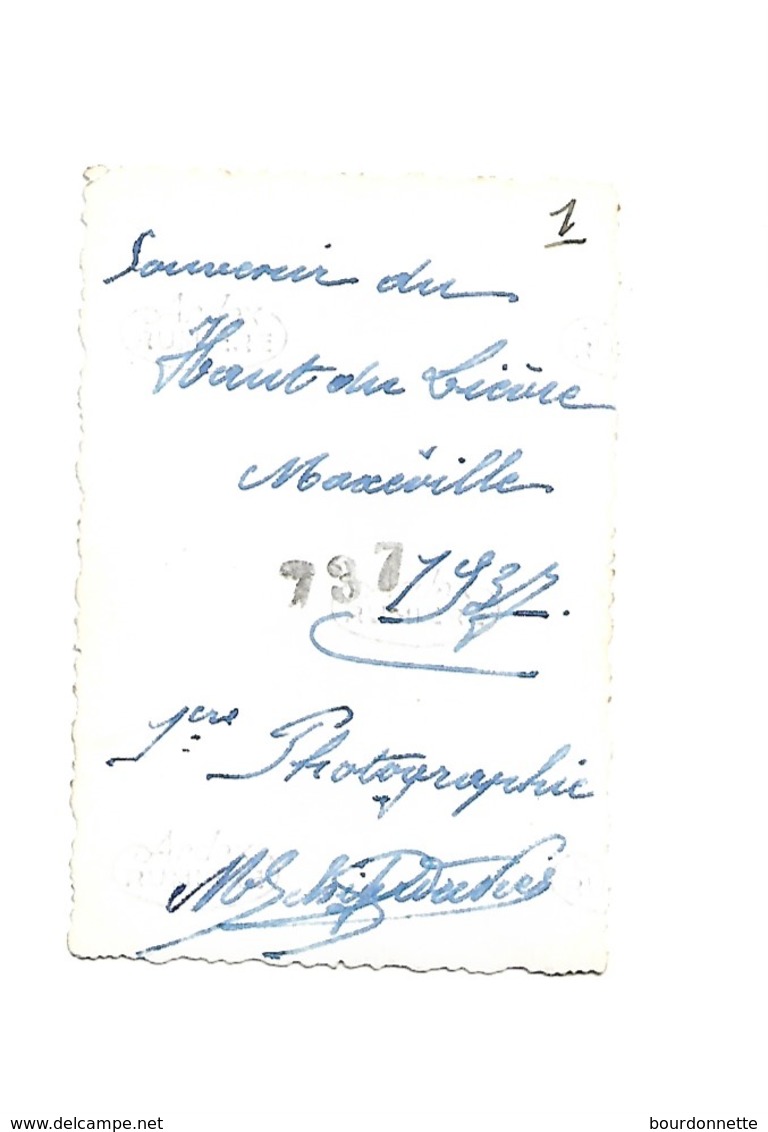 1
Souvenir du
Haut du Lièvre
Maxéville
737 1937.
1ère Photographie
delcampe.net
bourdonnette